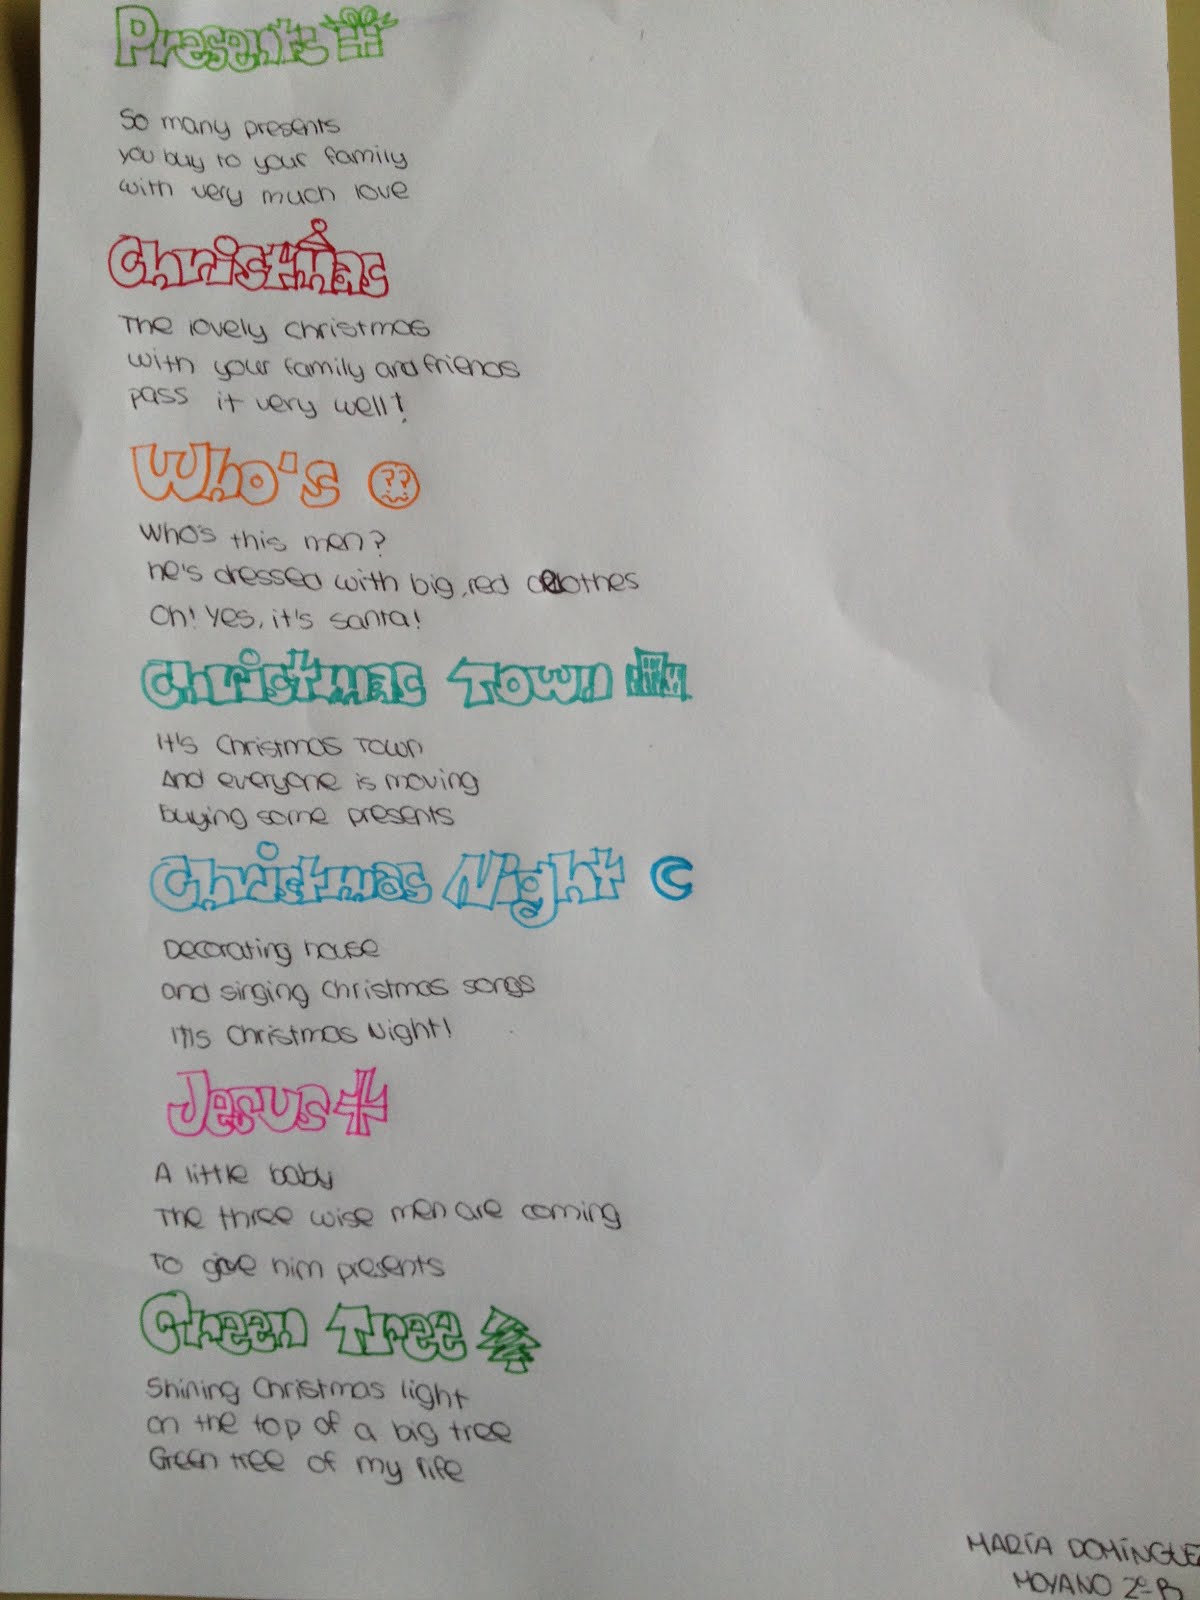 Presents
So many presents
you buy to your family
with very much love
Christmas
The lovely Christmas
with your family and friends
pass it very well!
Who's ??
Who's this men?
he's dressed with big, red clothes
Oh! Yes, it's santa!
Christmas Town
It's Christmas Town
And everyone is moving
buying some presents
Christmas Night
Decorating house
and singing Christmas songs
It's Christmas Night!
Jesus
A little baby
The three wise men are coming
To give him presents
Green Tree
Shining Christmas light
on the top of a big tree
Green tree of my life
MARÍA DOMÍNGUEZ
MOYANO 2º B